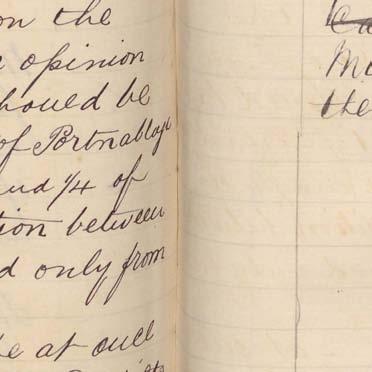 on the
opinion
should be
of Portnablagh
and 1/4 of
tion between
d only from
be at once
the